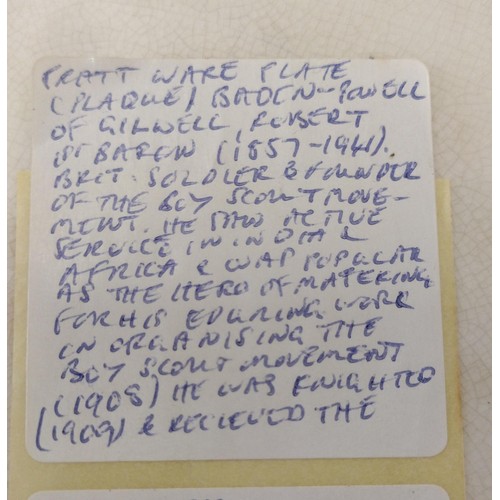 PRATT WARE PLATE
(PLAQUE) BADEN-POWELL
OF GILWELL, ROBERT
1ST BARON (1857-1941).
BRIT. SOLDIER & FOUNDER
OF THE BOY SCOUT MOVE-
MENT. HE SAW ACTIVE
SERVICE IN INDIA &
AFRICA & WAS POPULAR
AS THE HERO OF MAFEKING
FOR HIS EDURING WORK
ON ORGANISING THE
BOY SCOUT MOVEMENT
(1908) HE WAS KNIGHTED
(1909) & RECIEVED THE